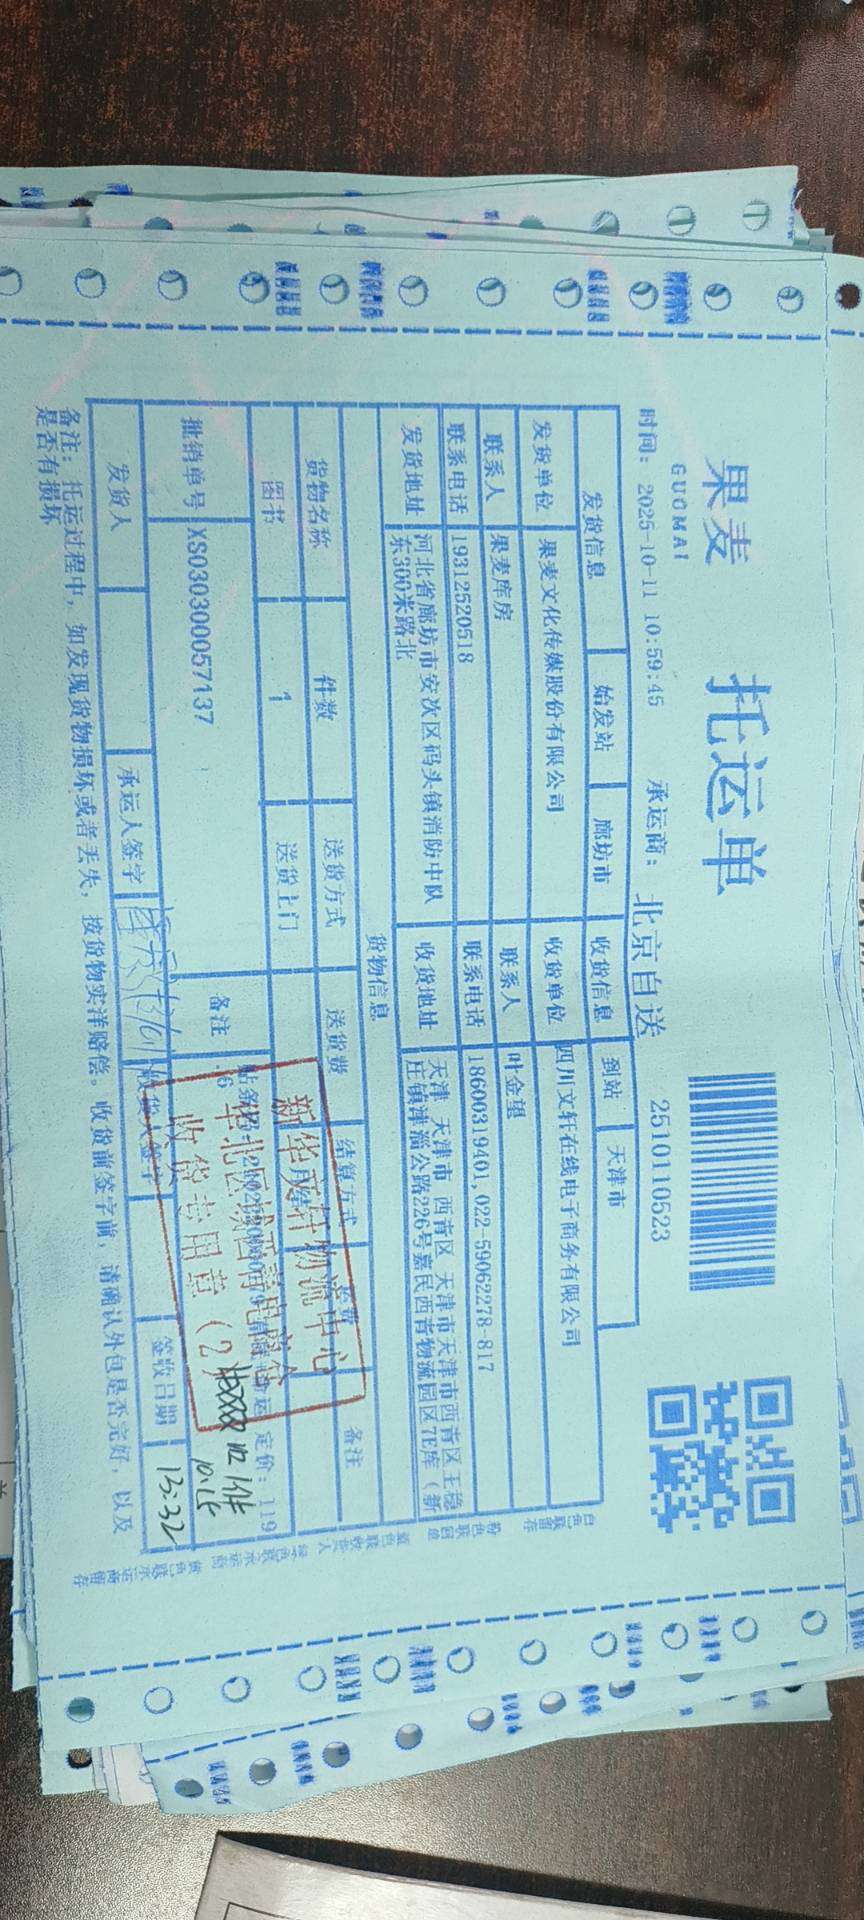 果麦 托运单
GUOMAI
时间: 2025-10-11 10:59:45 承运商: 北京自送 2510110523
发货信息 始发站 廊坊市 收货信息 到站 天津市
发货单位 果麦文化传媒股份有限公司 收货单位 四川文轩在线电子商务有限公司
联系人 果麦库房 联系人 叶金望
联系电话 19312520518 联系电话 18600319401,022-59062278-817
发货地址 河北省廊坊市安次区码头镇消防中队 收货地址 天津 天津市 西青区 天津市天津市西青区王稳
东300米路北 庄镇津淄公路226号嘉民西青物流园区7E库（新
货物信息
货物名称 件数 送货方式 送货费 结算方式 备注
图书 1 送货上门
批销单号 XS030300057137 备注 定价: 119
.6
新华文轩物流中心
华北区域西青电商仓
收货专用章（2）
收1件
10.15
发货人 承运人签字 收货人签字 签收日期 13:32
备注: 托运过程中，如发现货物损坏或者丢失，按货物实洋赔偿。收货前签字前，请确认外包是否完好，以及
是否有损坏